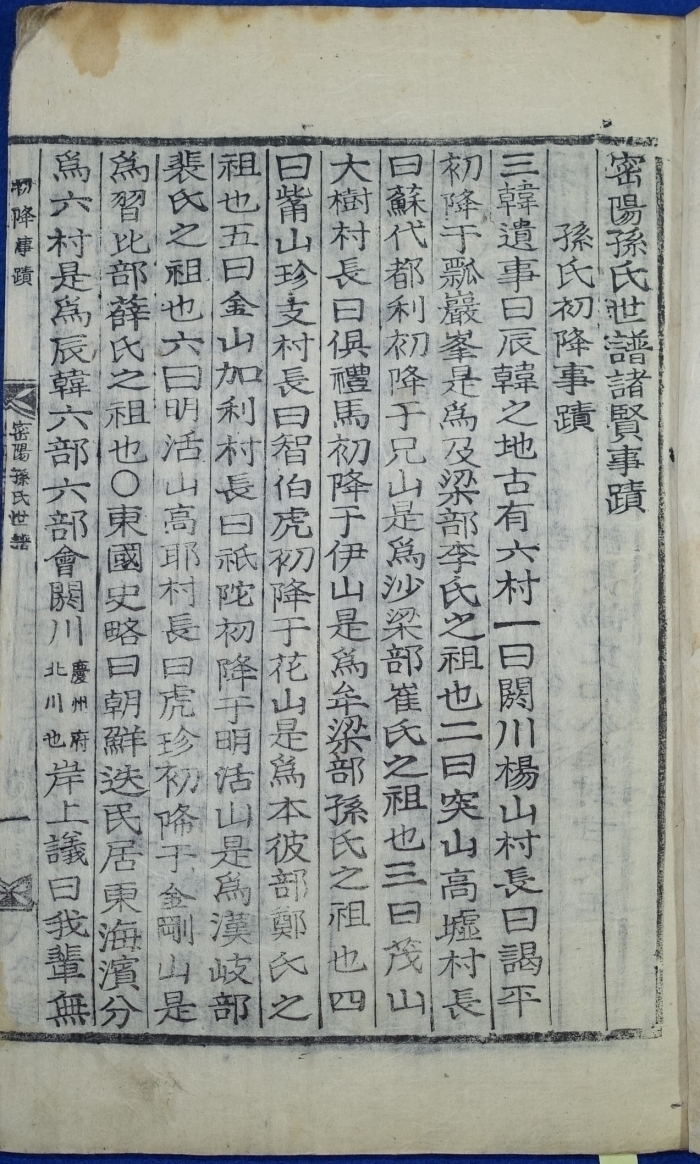 密陽孫氏世譜諸賢事蹟
孫氏初降事蹟
三韓遺事曰辰韓之地古有六村一曰閼川楊山村長曰謁平
初降于瓢巖峯是爲及梁部李氏之祖也二曰突山高墟村長
曰蘇代都利初降于兄山是爲沙梁部崔氏之祖也三曰茂山
大樹村長曰俱禮馬初降于伊山是爲牟梁部孫氏之祖也四
曰觜山珍支村長曰智伯虎初降于花山是爲本彼部鄭氏之
祖也五曰金山加利村長曰祇陀初降于明活山是爲漢岐部
裴氏之祖也六曰明活山高耶村長曰虎珍初降于金剛山是
爲習比部薛氏之祖也○東國史略曰朝鮮迭民居東海濱分
爲六村是爲辰韓六部六部會閼川慶州府北川也岸上議曰我輩無
初降事蹟
密陽孫氏世譜
一